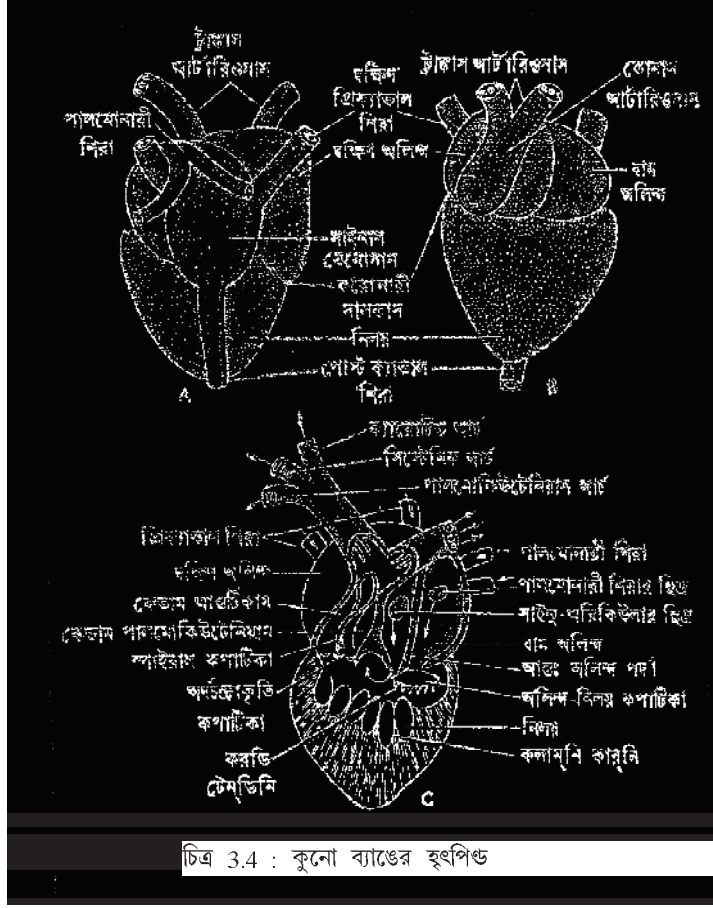 ট্রাঙ্কাস
আর্টারিওসাস
পালমোনারী
শিরা
দক্ষিণ
প্রিক্যাভাল
শিরা
দক্ষিণ অলিন্দ
সাইনাস
ভেনোসাস
করোনারী
সালকাস
নিলয়
পোস্ট ক্যাভাল
শিরা
A
ট্রাঙ্কাস আর্টারিওসাস
কোনাস
আর্টারিওসাস
বাম
অলিন্দ
B
ক্যারোটিড আর্চ
সিস্টেমিক আর্চ
পালমোকিউটেনিয়াস আর্চ
প্রিক্যাভাল শিরা
দক্ষিণ অলিন্দ
কেভাম আওর্টিকাম
কেভাম পালমোকিউটেনিয়াম
স্পাইরাল কপাটিকা
অর্ধচন্দ্রাকৃতি
কপাটিকা
করডি
টেন্ডিনি
পালমোনারী শিরা
পালমোনারী শিরার ছিদ্র
সাইনু-অরিকিউলার ছিদ্র
বাম অলিন্দ
আন্তঃ অলিন্দ পর্দা
অলিন্দ-নিলয় কপাটিকা
নিলয়
কলাম্‌নি কার্‌নি
C
চিত্র 3.4 : কুনো ব্যাঙের হৃৎপিণ্ড